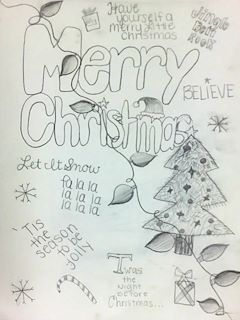 Have
yourself a
merry little
christmas
Jingle
Bell
Rock
Merry
BELIEVE
Christmas
Let It Snow
fa la la
la la la
la la la
la la
'Tis
the
season
to be
Jolly
Twas
the
Night
before
Christmas...